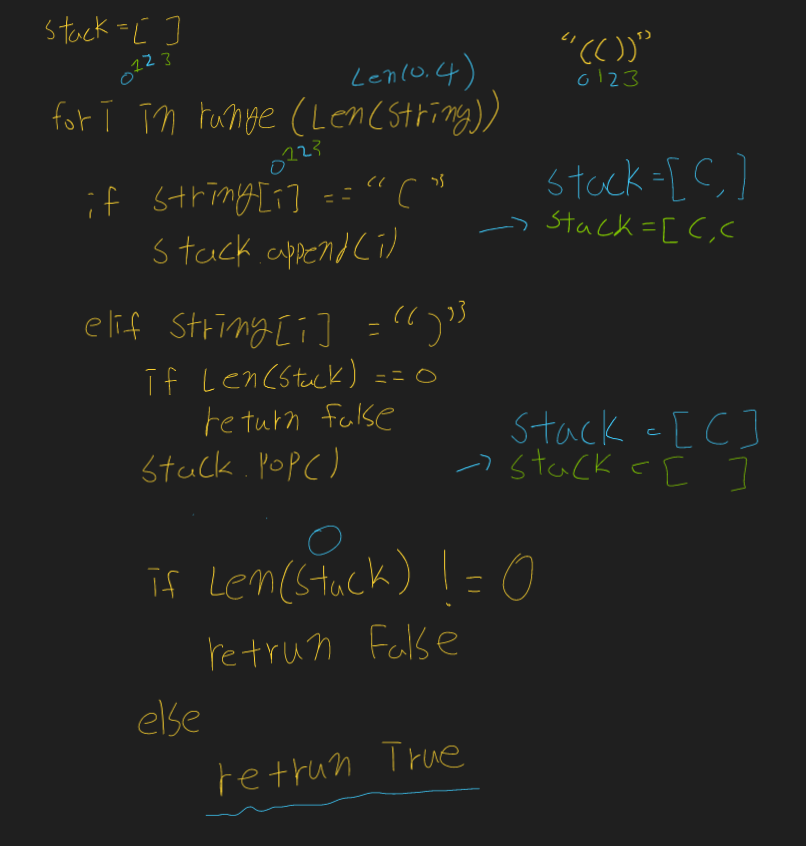 stack=[ ]
0 1 2 3
"(())"
0 1 2 3
Len(0.4)
for i in range (Len(String))
0 1 2 3
if string[i] == "("
stack.append(i)
stack=[ C, ]
→ stack=[ C, C
elif string[i] = ")"
if Len(stack) == 0
return false
stack.POP()
stack = [ C ]
→ stack = [ ]
0
if Len(stack) != 0
retrun False
else
retrun True